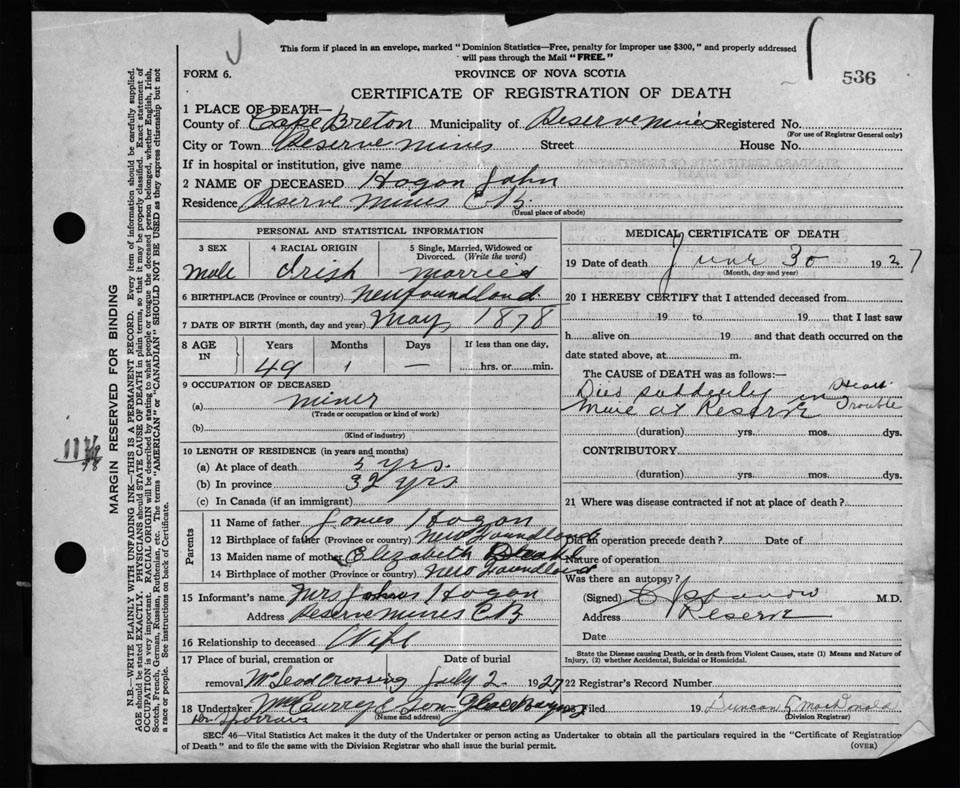 This form if placed in an envelope, marked "Dominion Statistics—Free, penalty for improper use $300," and properly addressed
will pass through the Mail "FREE."
FORM 6.
PROVINCE OF NOVA SCOTIA
536
CERTIFICATE OF REGISTRATION OF DEATH
1 PLACE OF DEATH—
County of Cape Breton Municipality of Reserve Mines Registered No.
(For use of Registrar General only)
City or Town Reserve Mines Street House No.
If in hospital or institution, give name
2 NAME OF DECEASED Hogan John
Residence Reserve Mines C B.
(Usual place of abode)
PERSONAL AND STATISTICAL INFORMATION
3 SEX 4 RACIAL ORIGIN 5 Single, Married, Widowed or
Divorced. (Write the word)
Male Irish Married
6 BIRTHPLACE (Province or country) Newfoundland
7 DATE OF BIRTH (month, day and year) May, 1878
8 AGE IN Years Months Days If less than one day,
49 1 — hrs. or min.
9 OCCUPATION OF DECEASED
(a) Miner
(Trade or occupation or kind of work)
(b)
(Kind of industry)
10 LENGTH OF RESIDENCE (in years and months)
(a) At place of death 5 yrs.
(b) In province 32 yrs
(c) In Canada (if an immigrant)
Parents
11 Name of father James Hogan
12 Birthplace of father (Province or country) Newfoundland
13 Maiden name of mother Elizabeth
14 Birthplace of mother (Province or country) Newfoundland
15 Informant's name Mrs John Hogan
Address Reserve Mines C B
16 Relationship to deceased Wife
17 Place of burial, cremation or Date of burial
removal McLeod Crossing July 2 1927
18 Undertaker McCurry & Son Glace Bay
(Name and address)
MEDICAL CERTIFICATE OF DEATH
19 Date of death June 30 1927
(Month, day and year)
20 I HEREBY CERTIFY that I attended deceased from
19 to 19 that I last saw
h alive on 19 and that death occurred on the
date stated above, at m.
The CAUSE OF DEATH was as follows:—
Died suddenly in Heart
Mine at Reserve Trouble
(duration) yrs. mos. dys.
CONTRIBUTORY
(duration) yrs. mos. dys.
21 Where was disease contracted if not at place of death?
Did an operation precede death? Date of
Nature of operation
Was there an autopsy?
(Signed) M.D.
Address Reserve
Date
State the Disease causing Death, or in death from Violent Causes, state (1) Means and Nature of
Injury, (2) whether Accidental, Suicidal or Homicidal.
22 Registrar's Record Number
Filed 19 Duncan MacDonald
(Division Registrar)
SEC. 46—Vital Statistics Act makes it the duty of the Undertaker or person acting as Undertaker to obtain all the particulars required in the "Certificate of Registration
of Death" and to file the same with the Division Registrar who shall issue the burial permit.
(OVER)
MARGIN RESERVED FOR BINDING
N.B.—WRITE PLAINLY WITH UNFADING INK—THIS IS A PERMANENT RECORD. Every item of information should be carefully supplied.
AGE should be stated EXACTLY. PHYSICIANS should STATE CAUSE OF DEATH in plain terms, so that it may be properly classified. Exact statement of
OCCUPATION is very important. RACIAL ORIGIN will be described by stating to what people or tongue the deceased person belonged, whether English, Irish,
Scotch, French, German, Russian, Ruthenian, etc. The terms "AMERICAN" or "CANADIAN" SHOULD NOT BE USED as they express citizenship but not
a race or people. See instructions on back of Certificate.